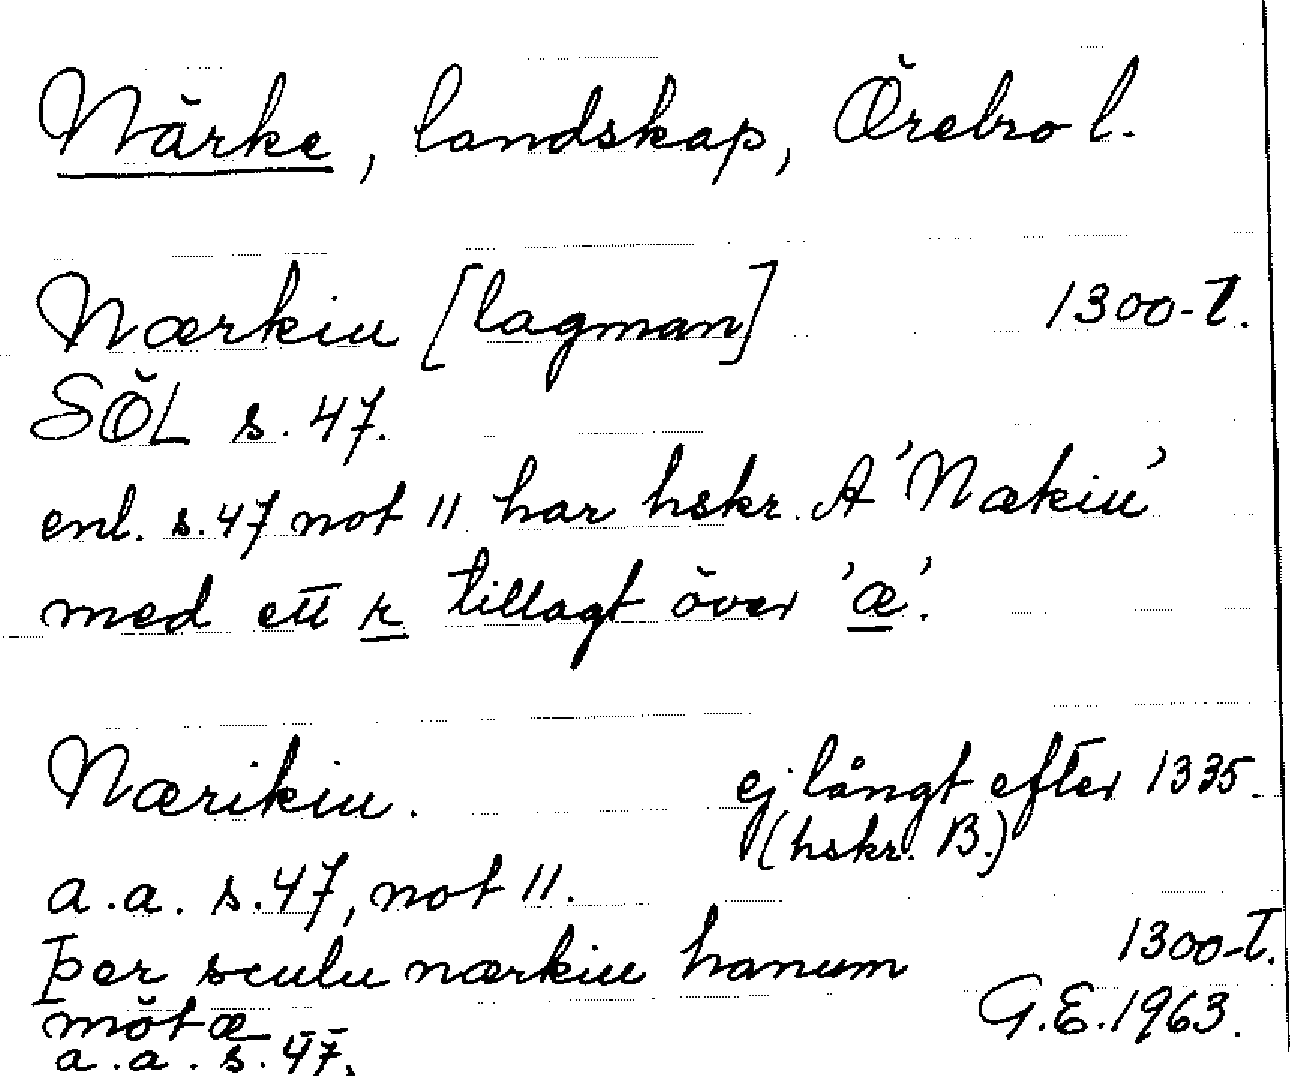 Närke, landskap, Örebro l.
Nærkiu [lagman] 1300-t.
SÖL s. 47.
enl. s. 47 not 11 har hskr. A 'Nækiu'
med ett r tillagt över 'æ'.
Nærikiu. ej långt efter 1335.
(hskr. B.)
a.a. s. 47, not 11.
Þer sculu nærkiu hanum 1300-t.
mötæ G.E. 1963.
a.a. s. 47.